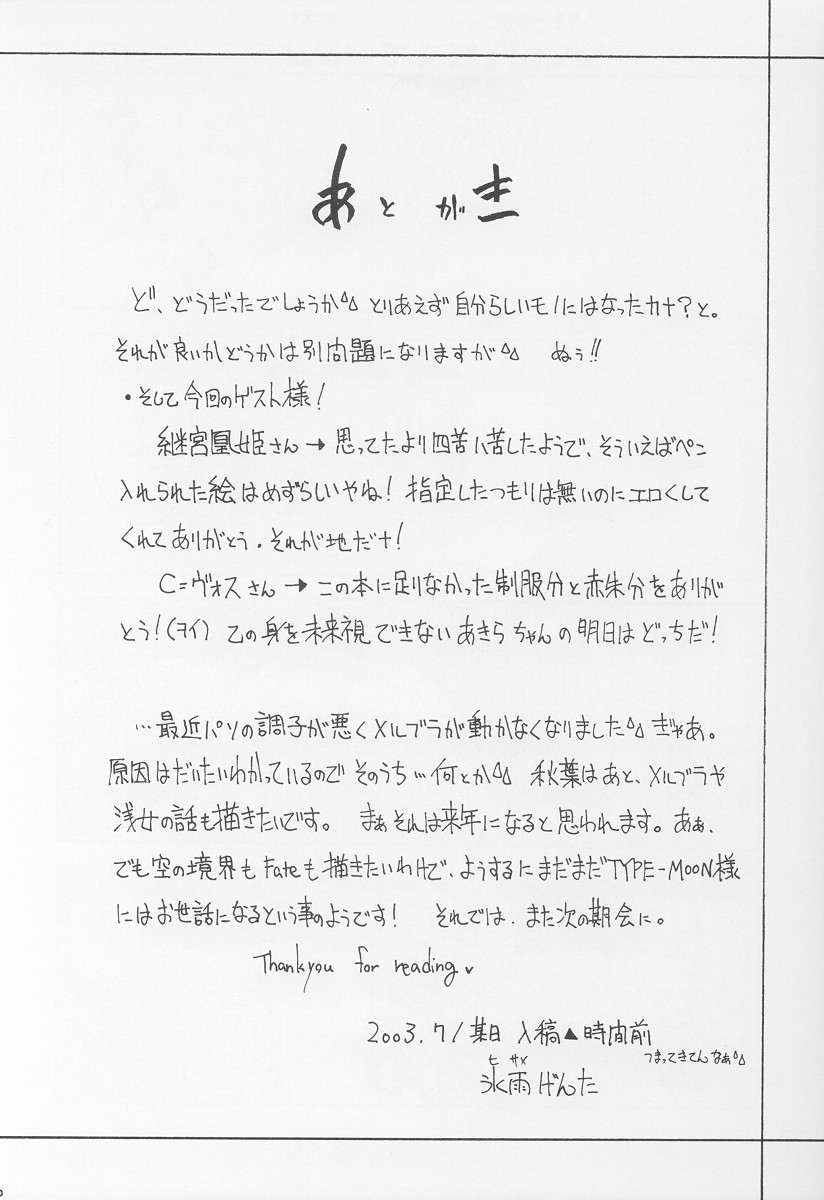 あとがき
ど、どうだったでしょうか^^ とりあえず自分らしいモノにはなったカナ?と。
それが良いかどうかは別問題になりますが^^ ぬぅ!!
・そして今回のゲスト様!
継宮凰姫さん → 思ってたより四苦八苦したようで、そういえばペン
入れられた絵はめずらしいやね! 指定したつもりは無いのにエロくして
くれてありがとう.それが地だナ!
C=ヴォスさん → この本に足りなかった制服分と赤朱分をありが
とう!(ヲイ) 乙の身を未来視できないあきらちゃんの明日はどっちだ!
…最近パソの調子が悪くメルブラが動かなくなりました^^ ぎゃあ。
原因はだいたいわかっているのでそのうち…何とか^^ 秋葉はあと、メルブラや
浅女の話も描きたいです。 まぁそれは来年になると思われます。あぁ、
でも空の境界もFateも描きたいわけで、ようするにまだまだTYPE-MOON様
にはお世話になるという事のようです! それでは、また次の期会に。
Thankyou for reading ♥
2003.7/某日 入稿▲時間前
つまってきてんなぁ^^
ヒサメ
氷雨げんた